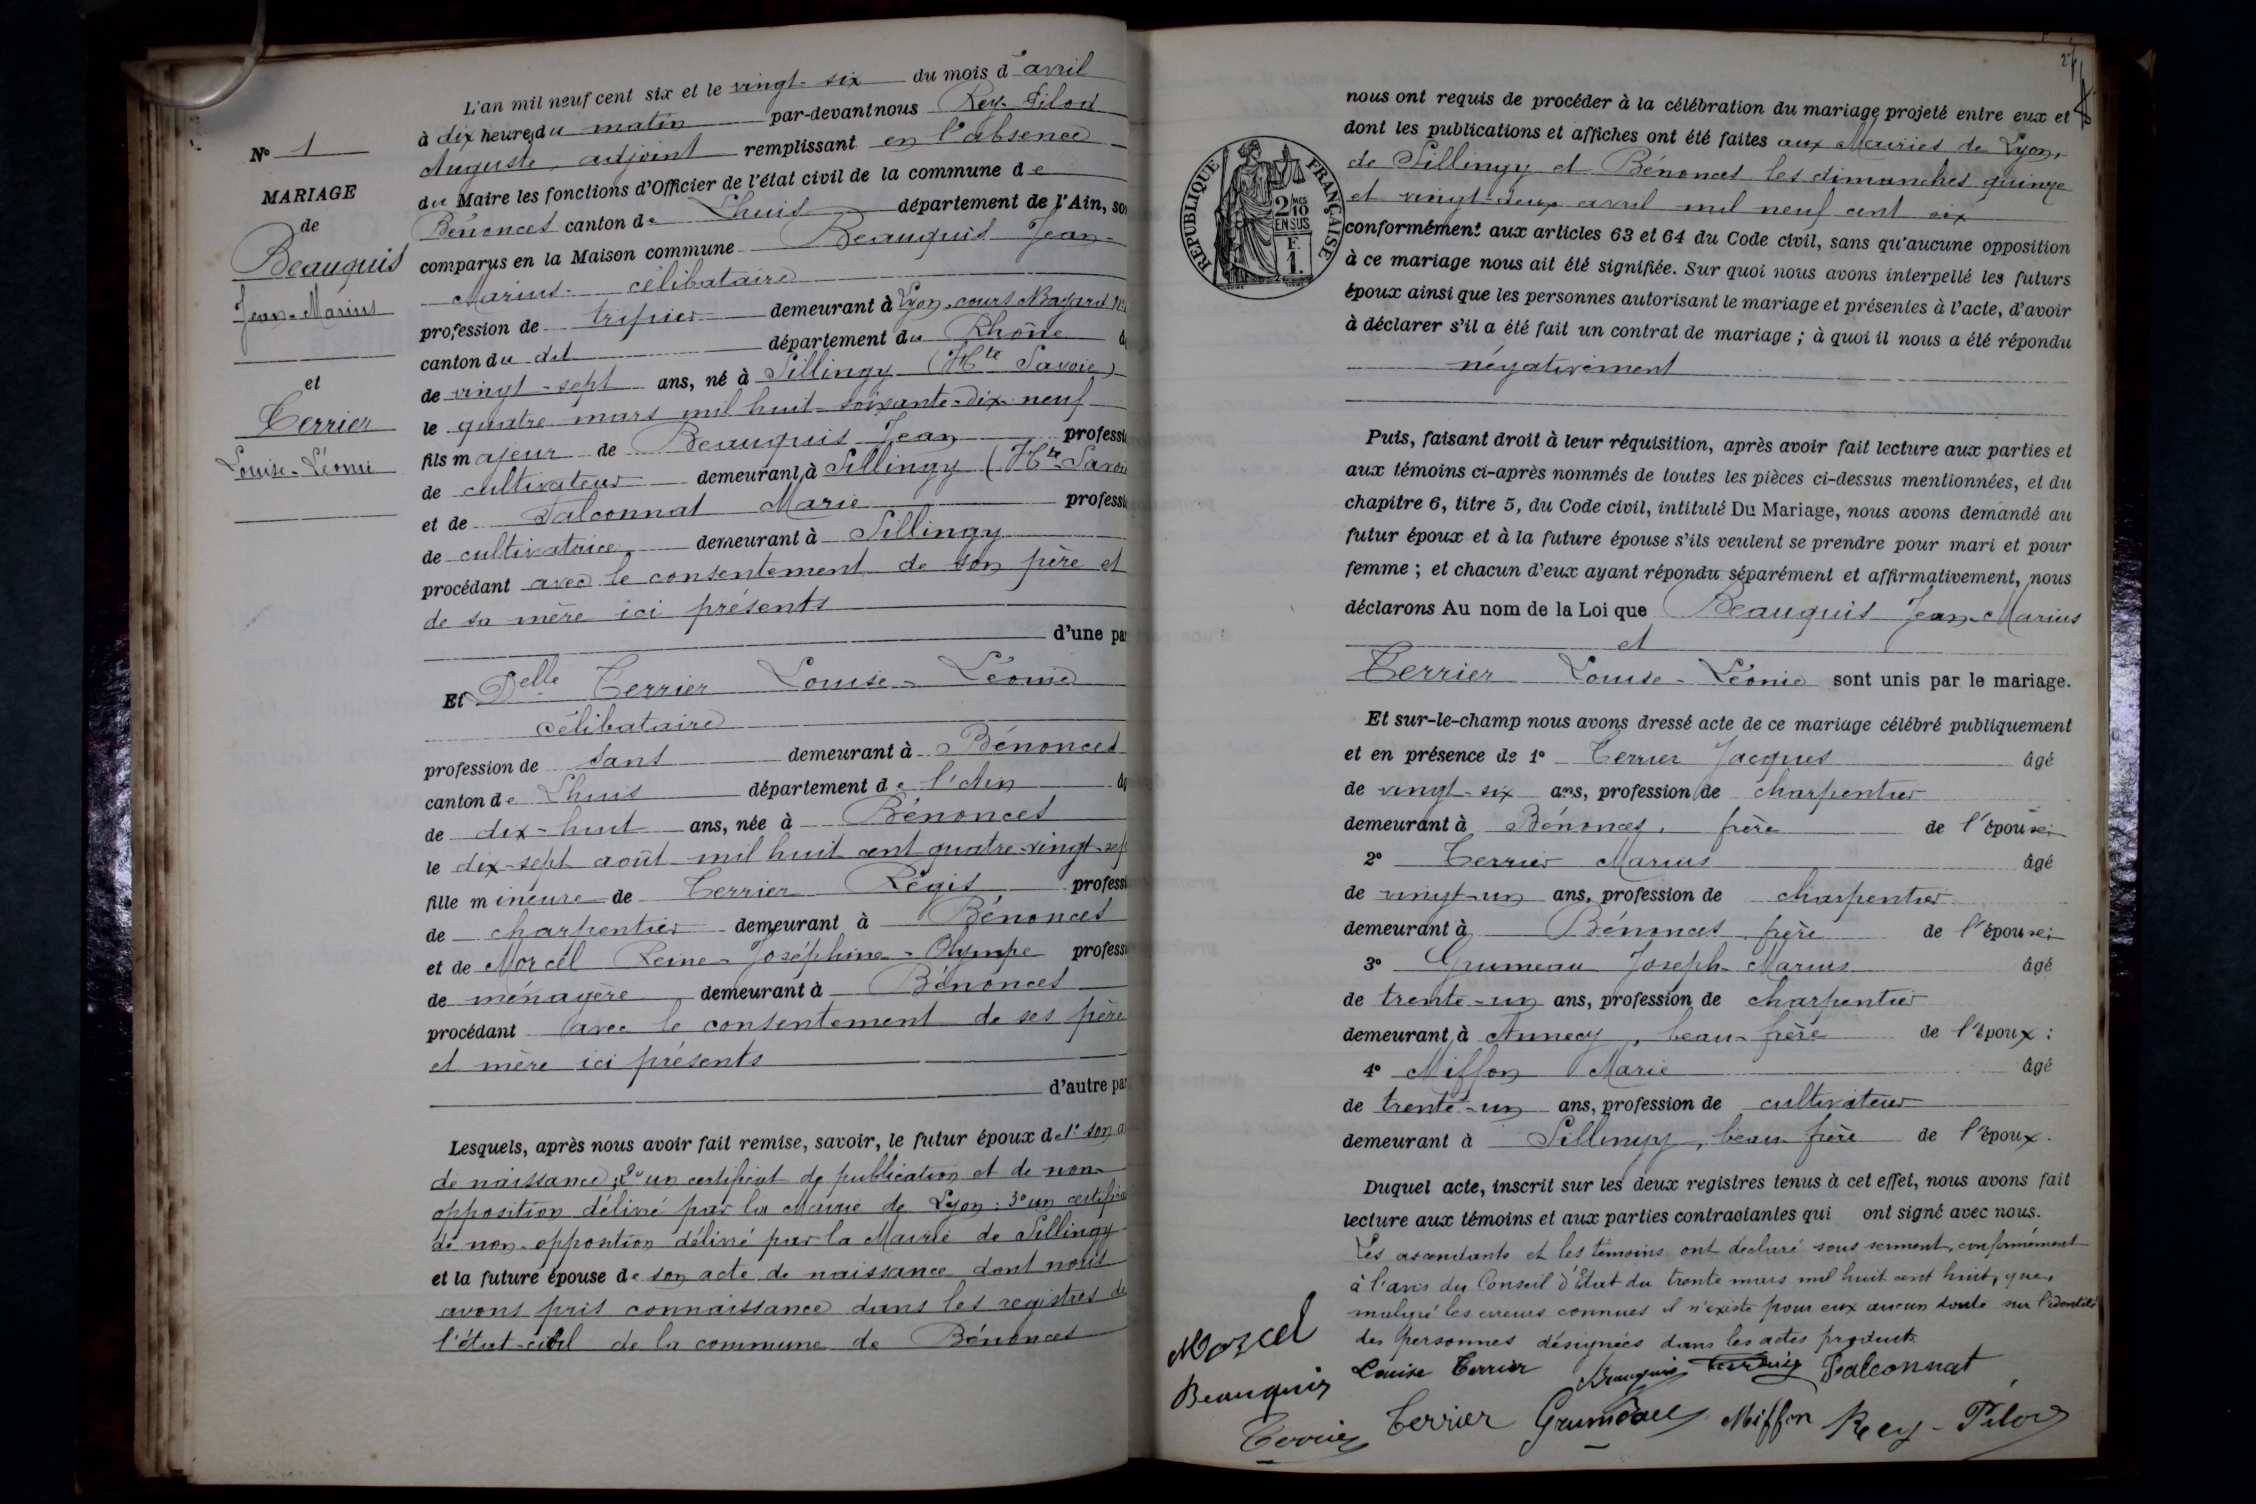 L'an mil neuf cent six et le vingt-six du mois d'avril
à dix heures du matin par-devant nous Rey-Pilod
Auguste, adjoint remplissant en l'absence
du Maire les fonctions d'Officier de l'état civil de la commune de
Bénonces canton de Lhuis département de l'Ain, so
comparus en la Maison commune Beauquis Jean-
Marius célibataire
profession de tripier demeurant à Lyon, cours Bayard
canton du dit département du Rhône
de vingt-sept ans, né à Sillingy (Hte Savoie)
le quatre mars mil huit soixante-dix-neuf
fils majeur de Beauquis Jean professi
de cultivateur demeurant à Sillingy (Hte Savoi
et de Falconnat Marie professi
de cultivatrice demeurant à Sillingy
procédant avec le consentement de son père et
de sa mère ici présents
d'une par
Et Delle Terrier Louise-Léonie
célibataire
profession de sans demeurant à Bénonces
canton de Lhuis département de l'Ain âg
de dix-huit ans, née à Bénonces
le dix-sept août mil huit cent quatre-vingt-sep
fille mineure de Terrier Régis professi
de charpentier demeurant à Bénonces
et de Morcel Reine-Joséphine-Olympe professi
de ménagère demeurant à Bénonces
procédant avec le consentement de ses père
et mère ici présents
d'autre par
Lesquels, après nous avoir fait remise, savoir, le futur époux de 1° son a
de naissance; 2° un certificat de publication et de non-
opposition délivré par la Mairie de Lyon; 3° un certifica
de non-opposition délivré par la Mairie de Sillingy
et la future épouse de son acte de naissance dont nous
avons pris connaissance dans les registres de
l'état-civil de la commune de Bénonces
N° 1
MARIAGE
de
Beauquis
Jean-Marius
et
Terrier
Louise-Léonie
RÉPUBLIQUE FRANÇAISE
2/10 MES
EN SUS
F.
1.
nous ont requis de procéder à la célébration du mariage projeté entre eux et
dont les publications et affiches ont été faites aux Mairies de Lyon,
de Sillingy et Bénonces les dimanches quinze
et vingt-deux avril mil neuf cent six
conformément aux articles 63 et 64 du Code civil, sans qu'aucune opposition
à ce mariage nous ait été signifiée. Sur quoi nous avons interpellé les futurs
époux ainsi que les personnes autorisant le mariage et présentes à l'acte, d'avoir
à déclarer s'il a été fait un contrat de mariage ; à quoi il nous a été répondu
négativement
Puis, faisant droit à leur réquisition, après avoir fait lecture aux parties et
aux témoins ci-après nommés de toutes les pièces ci-dessus mentionnées, et du
chapitre 6, titre 5, du Code civil, intitulé Du Mariage, nous avons demandé au
futur époux et à la future épouse s'ils veulent se prendre pour mari et pour
femme ; et chacun d'eux ayant répondu séparément et affirmativement, nous
déclarons Au nom de la Loi que Beauquis Jean-Marius
et
Terrier Louise-Léonie sont unis par le mariage.
Et sur-le-champ nous avons dressé acte de ce mariage célébré publiquement
et en présence de 1° Terrier Jacques âgé
de vingt-six ans, profession de charpentier
demeurant à Bénonces, frère de l'épouse;
2° Terrier Marius âgé
de vingt-un ans, profession de charpentier
demeurant à Bénonces frère de l'épouse;
3° Grumeau Joseph-Marius âgé
de trente-un ans, profession de charpentier
demeurant à Annecy, beau-frère de l'époux;
4° Miffon Marie âgé
de trente-un ans, profession de cultivateur
demeurant à Sillingy, beau frère de l'époux.
Duquel acte, inscrit sur les deux registres tenus à cet effet, nous avons fait
lecture aux témoins et aux parties contractantes qui ont signé avec nous.
Les ascendants et les témoins ont déclaré sous serment, conformément
à l'avis du Conseil d'Etat du trente mars mil huit cent huit, que,
malgré les erreurs connues il n'existe pour eux aucun doute sur l'identité
des personnes désignées dans les actes produits.
Morcel Louise Terrier Beauquis Falconnat
Beauquis
Terrier Terrier Grumeau Miffon Rey-Pilod